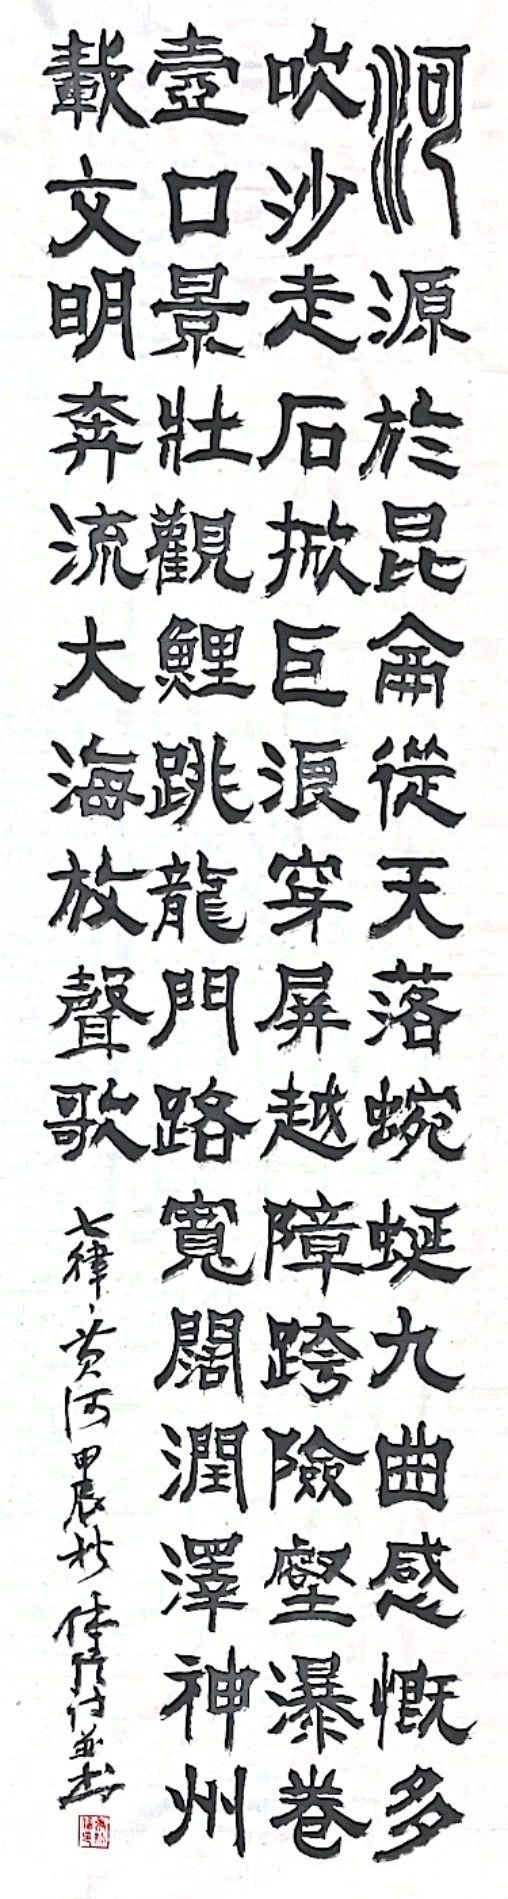 河源於昆侖從天落蜿蜒九曲感慨多
吹沙走石掀巨浪穿屏越障跨險壑瀑卷
壺口景壯觀鯉跳龍門路寬闊潤澤神州
載文明奔流大海放聲歌
七律·黄河甲辰秋 並书